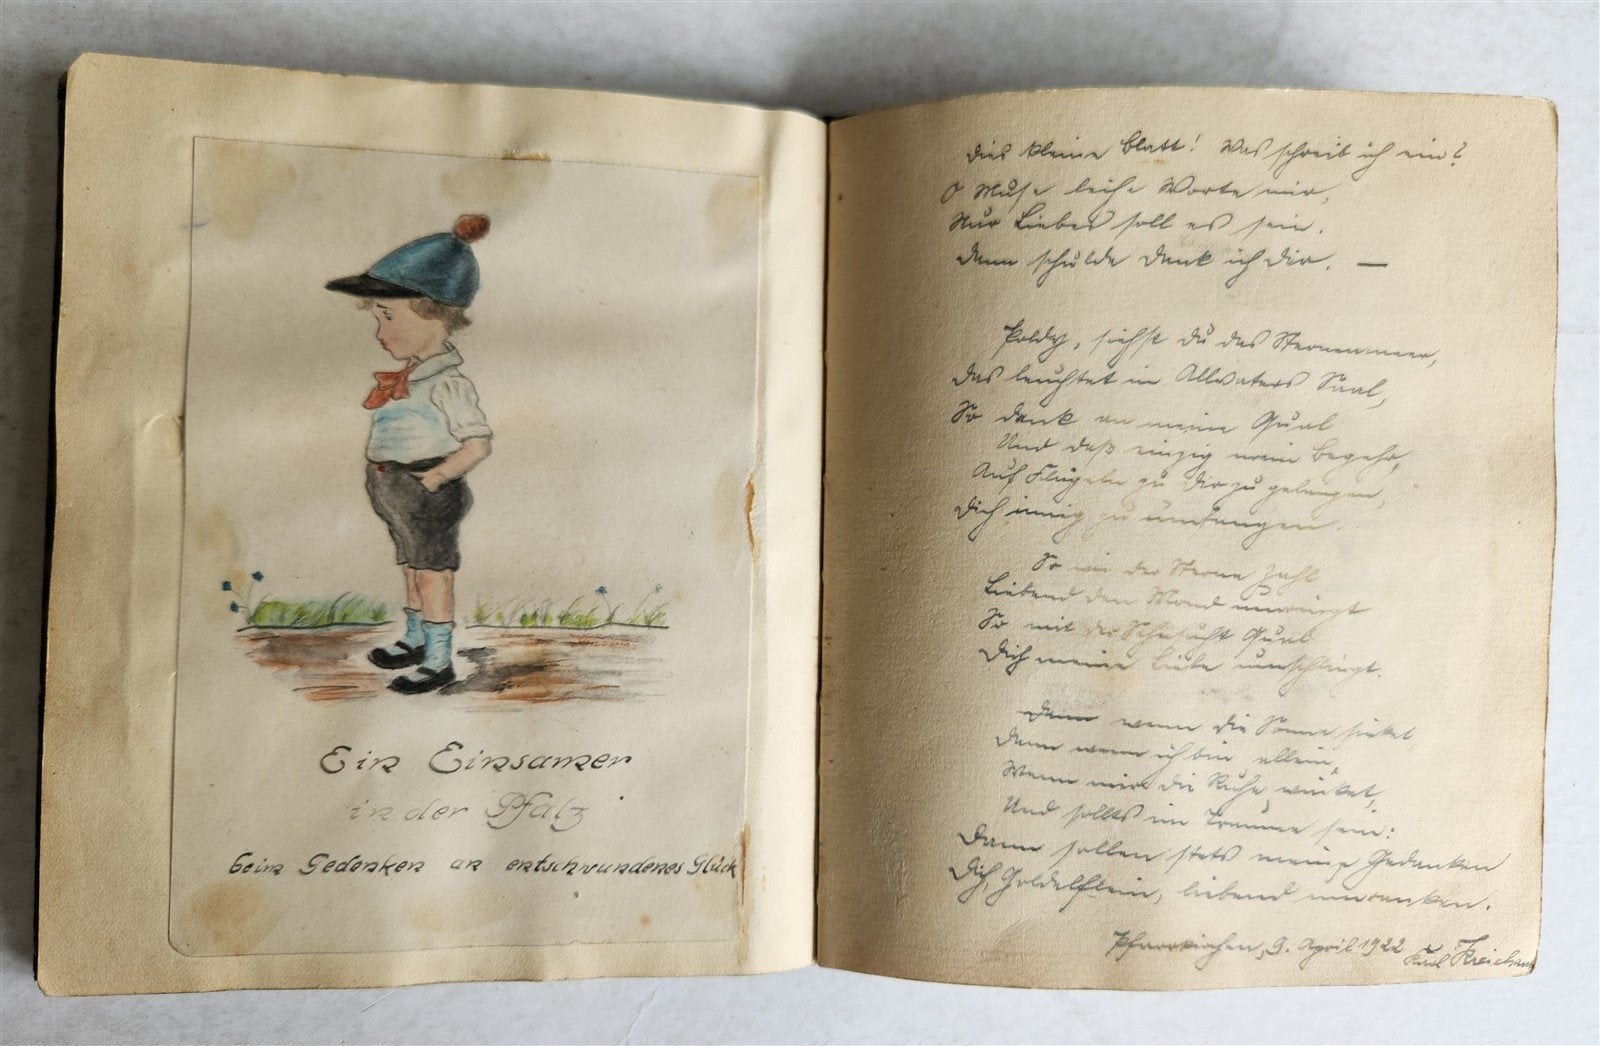 Ein Einsamer
in der Pfalz
beim Gedenken an entschwundenes Glück
Dies kleine Blatt! Was schreib ich ein?
O Muse leihe Worte mir,
Nur Liebes soll es sein.
Dann schulde Dank ich Dir. —
Poldy, siehst Du das Sternenmeer,
Das leuchtet in Allvaters Saal,
So denk an meine Qual
Und daß einzig mein Begehr,
Auf Flügeln zu Dir zu gelangen,
Dich innig zu umfangen.
So wie der Sterne Zahl
Liebend den Mond umringt
So mit der Sehnsucht Qual
Dich meine Liebe umschlingt.
Dann wenn die Sonne sinket
Dann wenn ich bin allein,
Wenn mir die Ruhe winket,
Und sollts im Traume sein:
Dann sollen stets meine Gedanken
Dich, Goldelflein, liebend umranken.
Pfarrkirchen, 9. April 1922
Karl